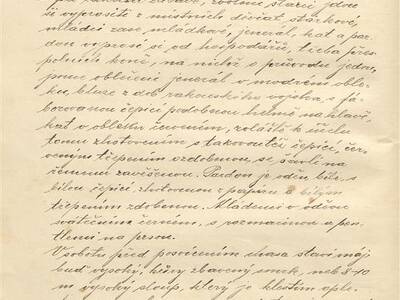 si vyprositi z místních děvčat stárkové,
mládci zase mládkové, jenerál, kat a par-
don vyprosí si od hospodářů, třeba přes-
polních koně, na nichž v průvodu jedou,
jsouc oblečeni jenerál v modrém oble-
ku, bluze z dob rakouského vojska, s fá-
borovanou čepicí podobnou helmě na hlavě,
kat v obleku červeném, zvláště k účelu
tomu zhotoveném s takovoutéž čepicí, čer-
veným třepením ozdobenou, se šavlí na
řemenu zavěšenou. Pardon je oděn bíle, s
bílou čepicí zhotovenou z papíru a bílým
třepením zdobenou. Mládenci v oděvu
svátečním černém, s rozmarinou a pen-
tlemi na prsou.
V sobotu před posvícením chasa staví máj
buď vysoký, kůry zbavený smrk, neb 8-10
m vysoký sloup, který je klestím ople-